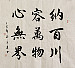 納百川
容萬物
心無界